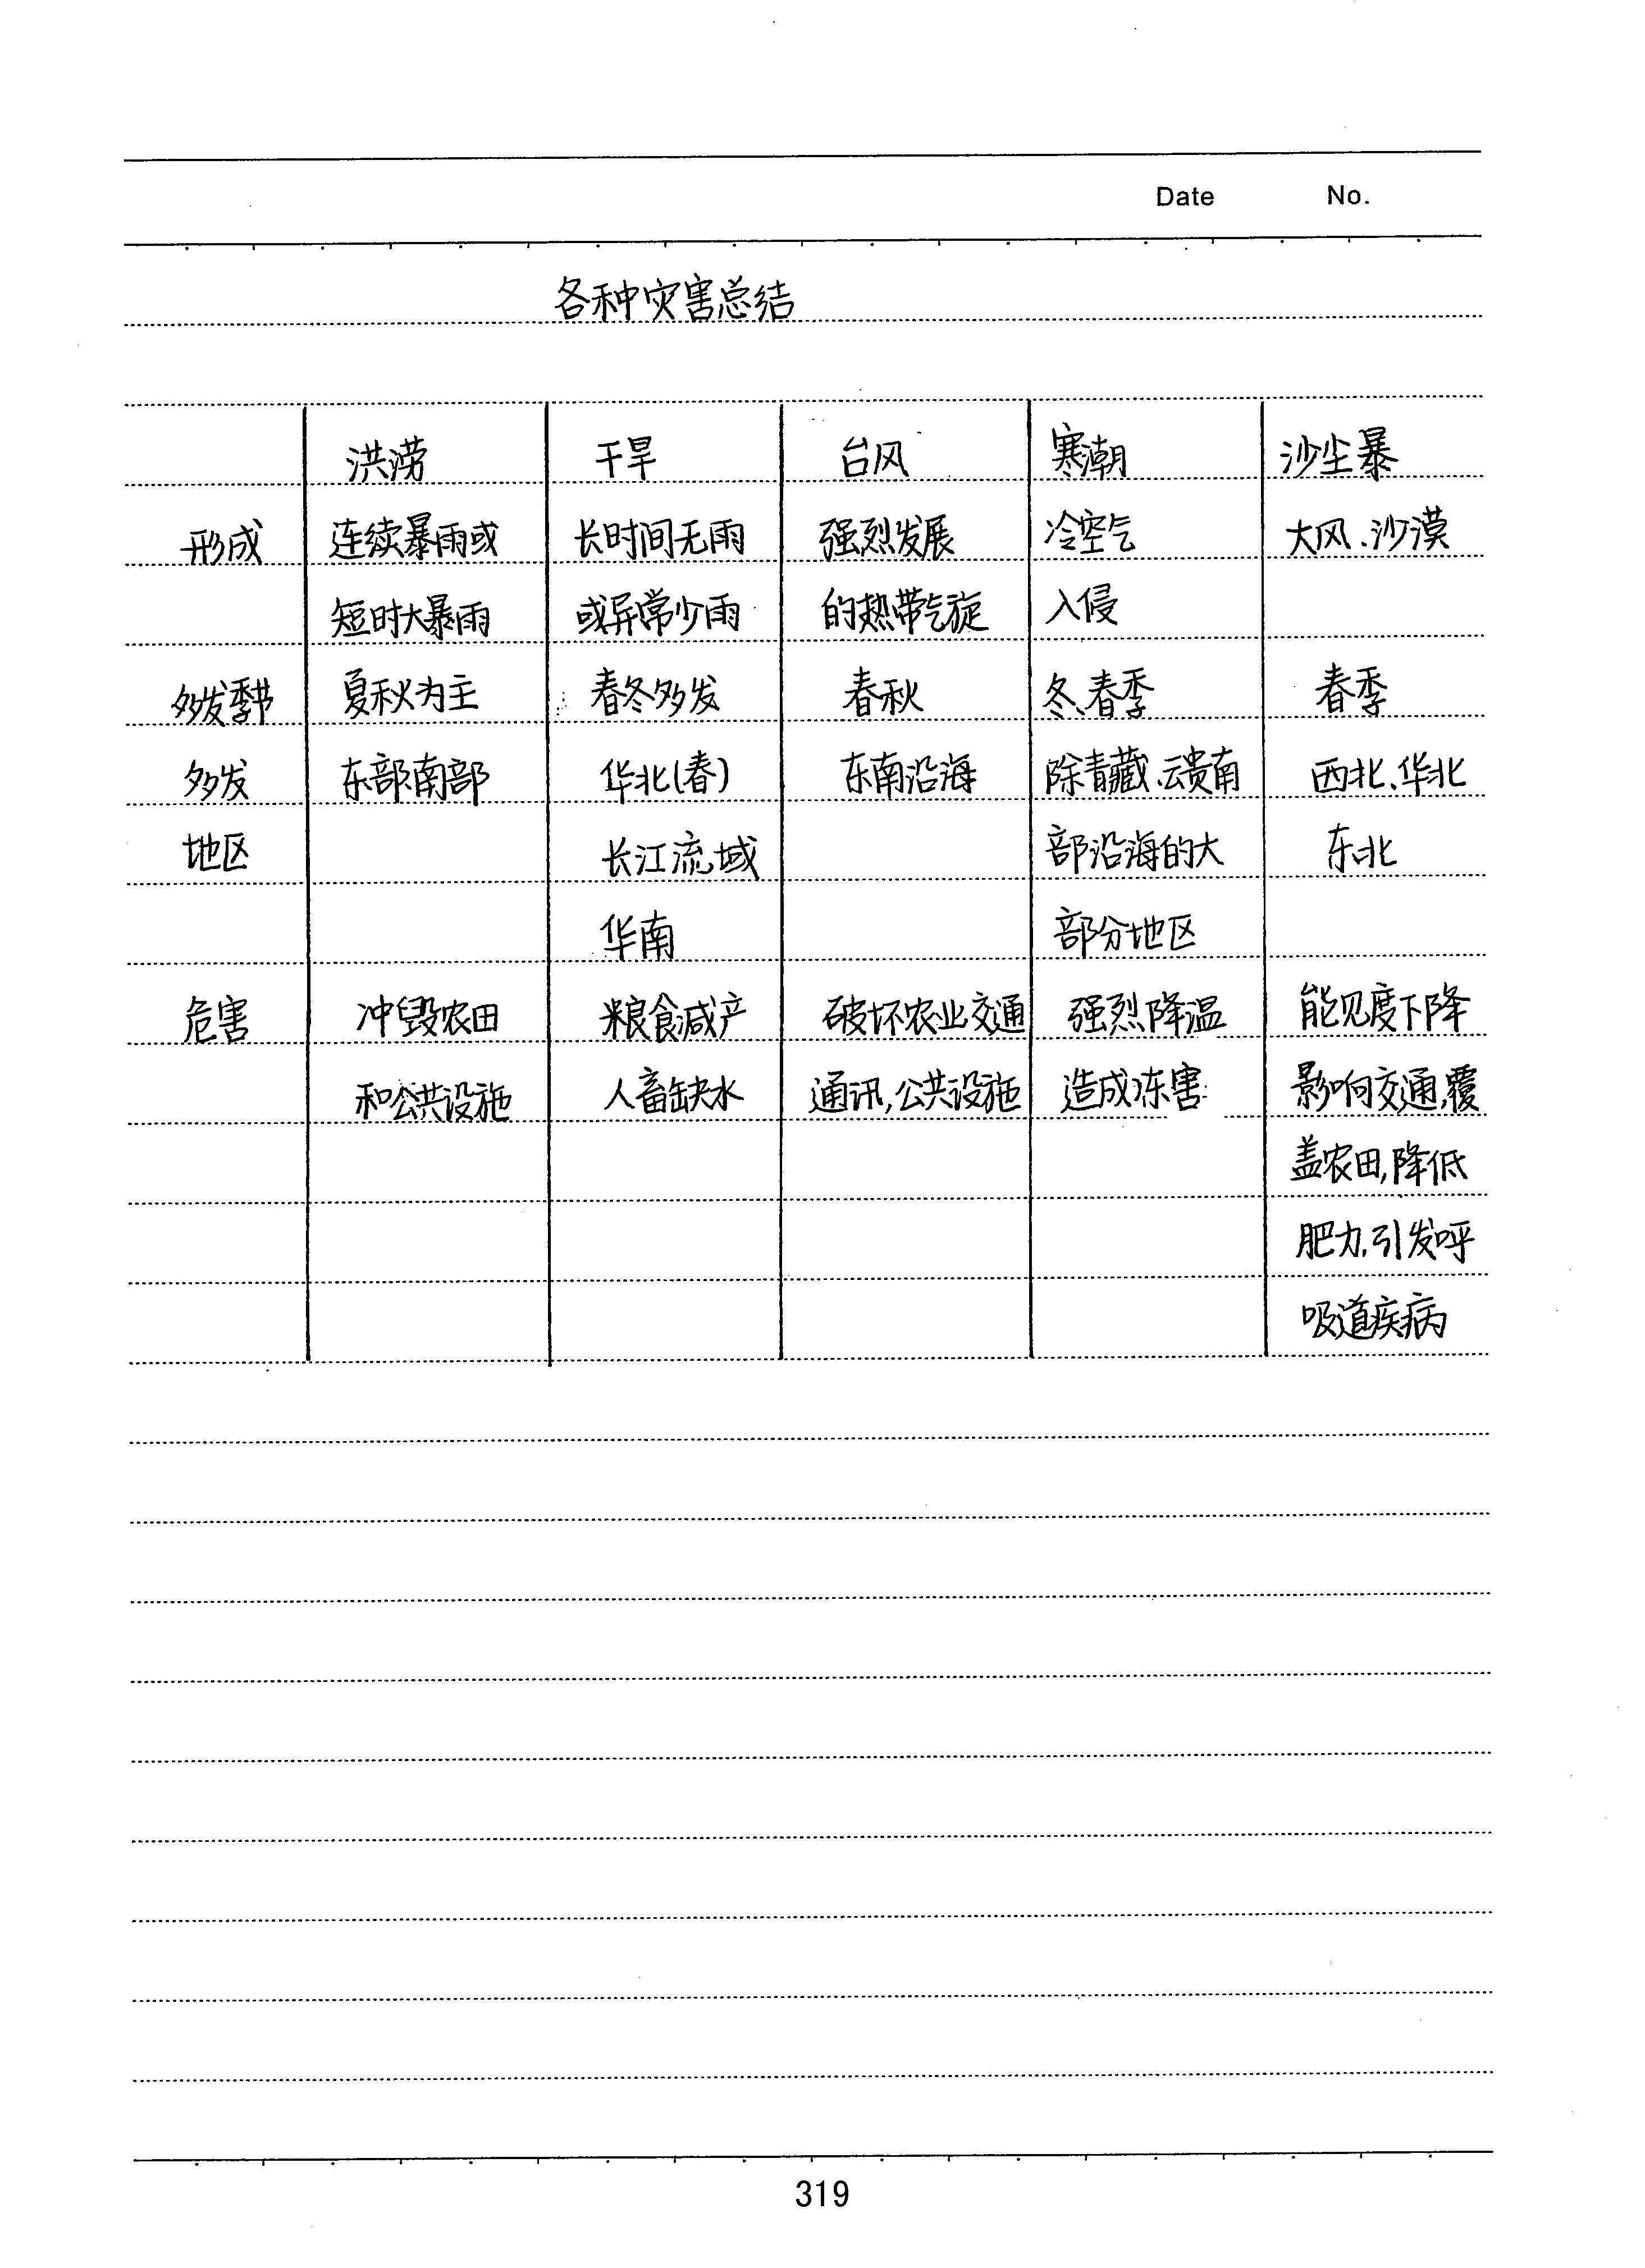 Date No.
各种灾害总结
洪涝 干旱 台风 寒潮 沙尘暴
形成 连续暴雨或 长时间无雨 强烈发展 冷空气 大风、沙漠
短时大暴雨 或异常少雨 的热带气旋 入侵
多发季节 夏秋为主 春冬多发 春秋 冬、春季 春季
多发 东部、南部 华北(春) 东南沿海 除青藏、云贵南 西北、华北
地区 长江流域 部沿海的大 东北
华南 部分地区
危害 冲毁农田 粮食减产 破坏农业交通 强烈降温 能见度下降
和公共设施 人畜缺水 通讯,公共设施 造成冻害 影响交通,覆
盖农田,降低
肥力,引发呼
吸道疾病
319